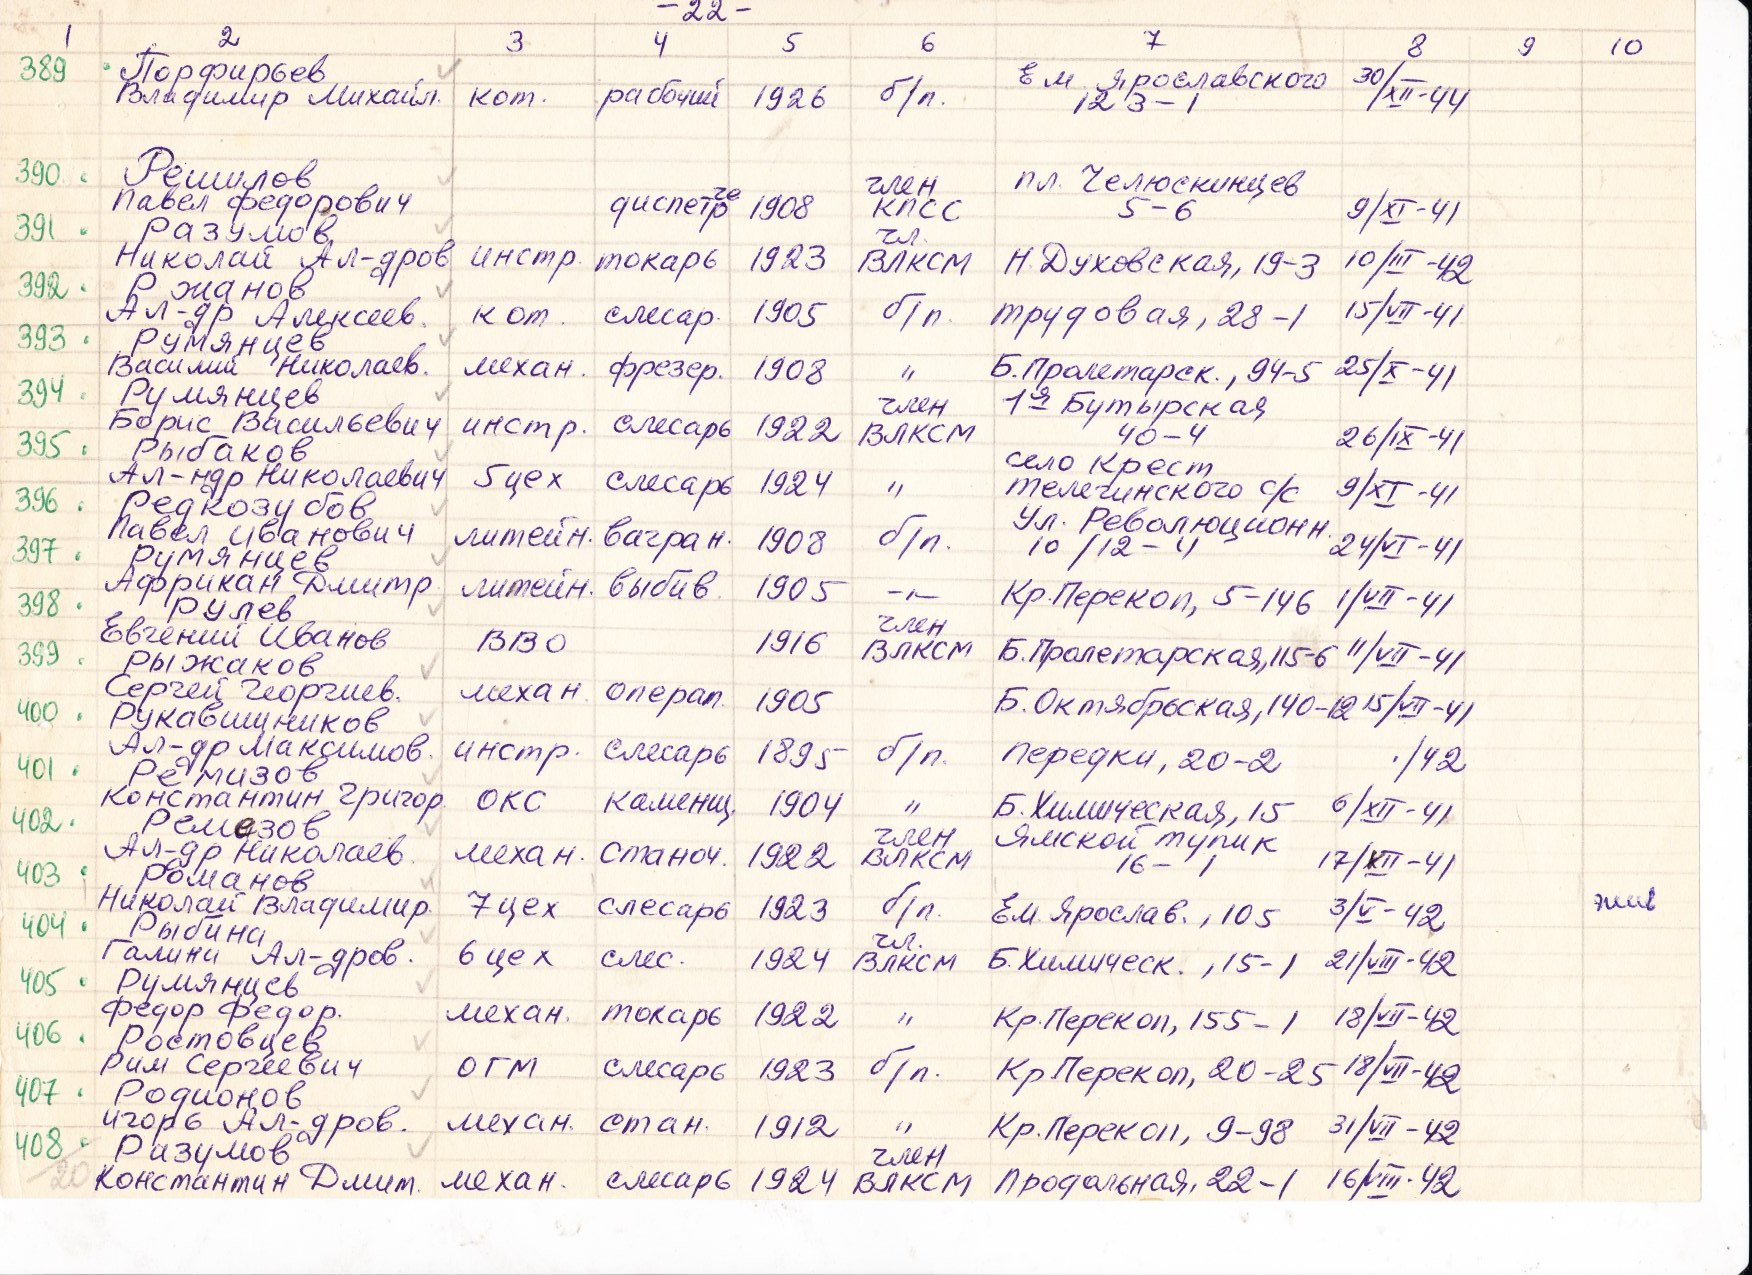 -22-
1 2 3 4 5 6 7 8 9 10
389 Порфирьев Ем. Ярославского 30/XII-44
Владимир Михайл. кот. рабочий 1926 б/п. 123-1
390. Решилов член пл. Челюскинцев
Павел Федорович диспетче 1908 КПСС 5-6 9/XI-41
391. Разумов чл.
Николай Ал-дров инстр. токарь 1923 ВЛКСМ Н. Духовская, 19-3 10/III-42
392. Ржанов
Ал-др Алексеев. кот. слесар. 1905 б/п. Трудовая, 28-1 15/VII-41
393. Румянцев
Василий Николаев. механ. фрезер. 1908 " Б. Пролетарск., 94-5 25/X-41
394. Румянцев член 1я Бутырская
Борис Васильевич инстр. слесарь 1922 ВЛКСМ 40-4 26/IX-41
395. Рыбаков село Крест
Ал-ндр Николаевич 5 цех слесарь 1924 " Телегинского с/с 9/XI-41
396. Редкозубов Ул. Революционн.
Павел Иванович литейн. вагран. 1908 б/п. 10/12-4 24/VI-41
397. Румянцев
Африкан Дмитр. литейн. выбив. 1905 -"- Кр. Перекоп, 5-146 1/VII-41
398. Рулев член
Евгений Иванов ВВО 1916 ВЛКСМ Б. Пролетарская, 115-6 11/VII-41
399. Рыжаков
Сергей Георгиев. механ. операт. 1905 Б. Октябрьская, 140-12 15/VII-41
400. Рукавишников
Ал-др Максимов. инстр. слесарь 1895 б/п. Передки, 20-2 ./42
401. Ремизов
Константин Григор. ОКС каменщ. 1904 " Б. Химическая, 15 6/XII-41
402. Ремезов член Ямской тупик
Ал-др Николаев. механ. станоч. 1922 ВЛКСМ 16-1 17/XII-41
403. Романов
Николай Владимир. 7 цех слесарь 1923 б/п. Ем. Ярослав., 105 3/V-42 жив
404. Рыбина чл.
Галина Ал-дров. 6 цех слес. 1924 ВЛКСМ Б. Химическ., 15-1 21/VIII-42
405. Румянцев
Федор Федор. механ. токарь 1922 " Кр. Перекоп, 155-1 18/VII-42
406. Ростовцев
Рим Сергеевич ОГМ слесарь 1923 б/п. Кр. Перекоп, 20-25 18/VII-42
407. Родионов
Игорь Ал-дров. механ. стан. 1912 " Кр. Перекоп, 9-98 31/VII-42
408. Разумов член
20 Константин Дмит. механ. слесарь 1924 ВЛКСМ Продольная, 22-1 16/VIII-42